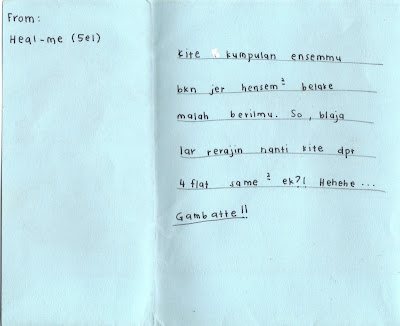 From:
Heal-me (5e1)
kite kumpulan ensemmu
bkn jer hensem² belake
malah berilmu. So, blaja
lar rerajin nanti kite dpt
4 flat same² ek?! Hehehe...
Gambatte!!